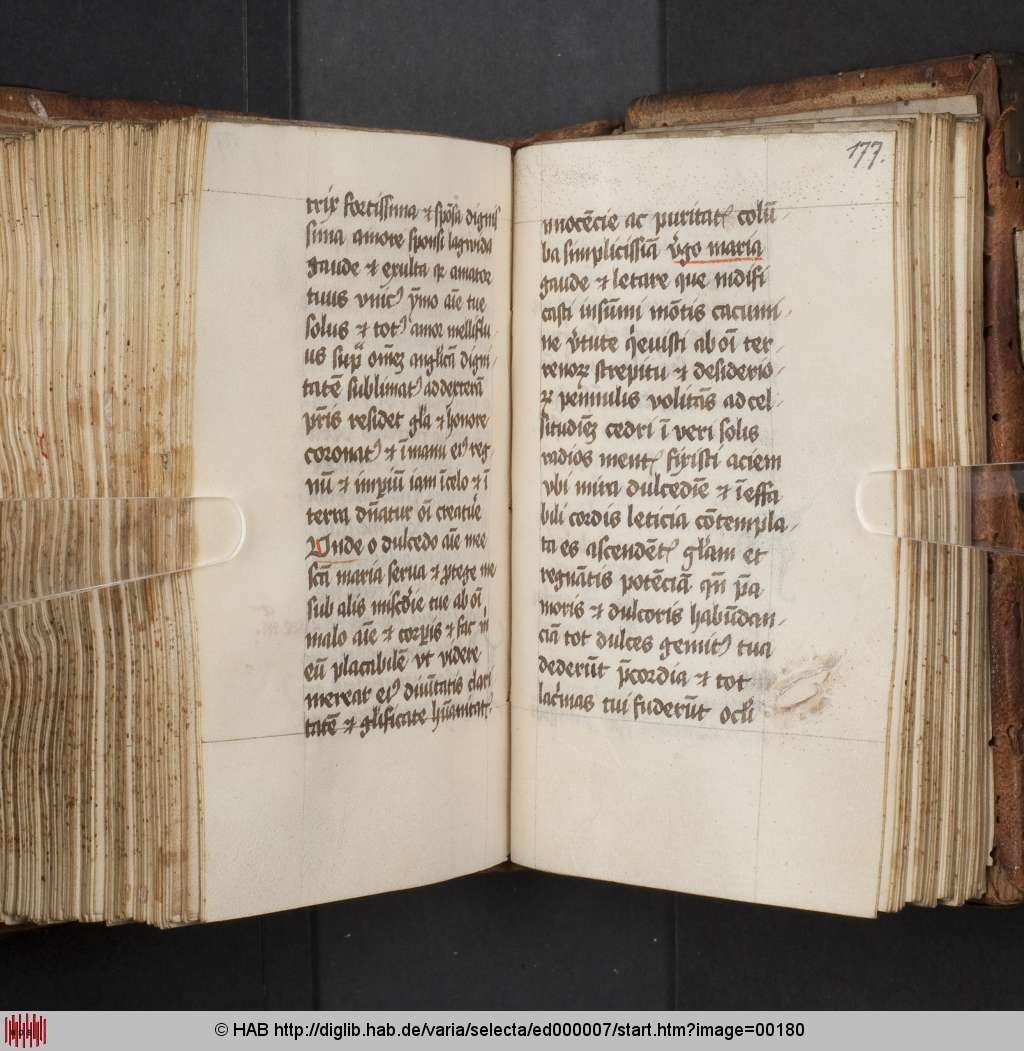 trix fortissima ⁊ spōsa dignis
sima amore sponsi lagwida
gaude ⁊ exulta qꝛ amator
tuus vnicꝰ ymo aīe tue
solus ⁊ totꝰ amor melliflu
us suꝑ om̄eꝫ angl'icā digni
tatē sublimatꝰ ad dexterā
pr̄is residet gl'a ⁊ honore
coronatꝰ ⁊ ī manu eiꝰ reg
nū ⁊ imꝑiū iam ī celo ⁊ ī
terra dn̄atur oī creatur̄e
Vnde o dulcedo aīe mee
scā maria serua ⁊ ꝓtege me
sub alis mīscd'ie tue ab oī
malo aīe ⁊ corꝑis ⁊ fac m
eū placabilē vt videre
merear eiꝰ diuītatis clari
tatē ⁊ gl'ificate hūanitatꝭ
177.
innocēcie ac puritatꝭ colū
ba simplicissiā v'go maria
gaude ⁊ letare que nidifi
casti in sūmi mōtis cacumi
ne v'tute q'euisti ab oī ter
renoꝝ strepitu ⁊ desiderio
ꝝ pennulis volitās ad cel
situdīeꝫ cedri ī veri solis
radios mentꝭ fixisti aciem
vbi mira dulcēdie ⁊ īeffa
bili cordis leticia cōtempla
ta es ascendētꝭ gl'am et
regnātis potēciā qn̄ p̄a
moris ⁊ dulcoris habūdan
ciā tot dulces gemitꝰ tua
dederūt p̄cordia ⁊ tot
lac'mas tui fuderūt oc'li
© HAB http://diglib.hab.de/varia/selecta/ed000007/start.htm?image=00180